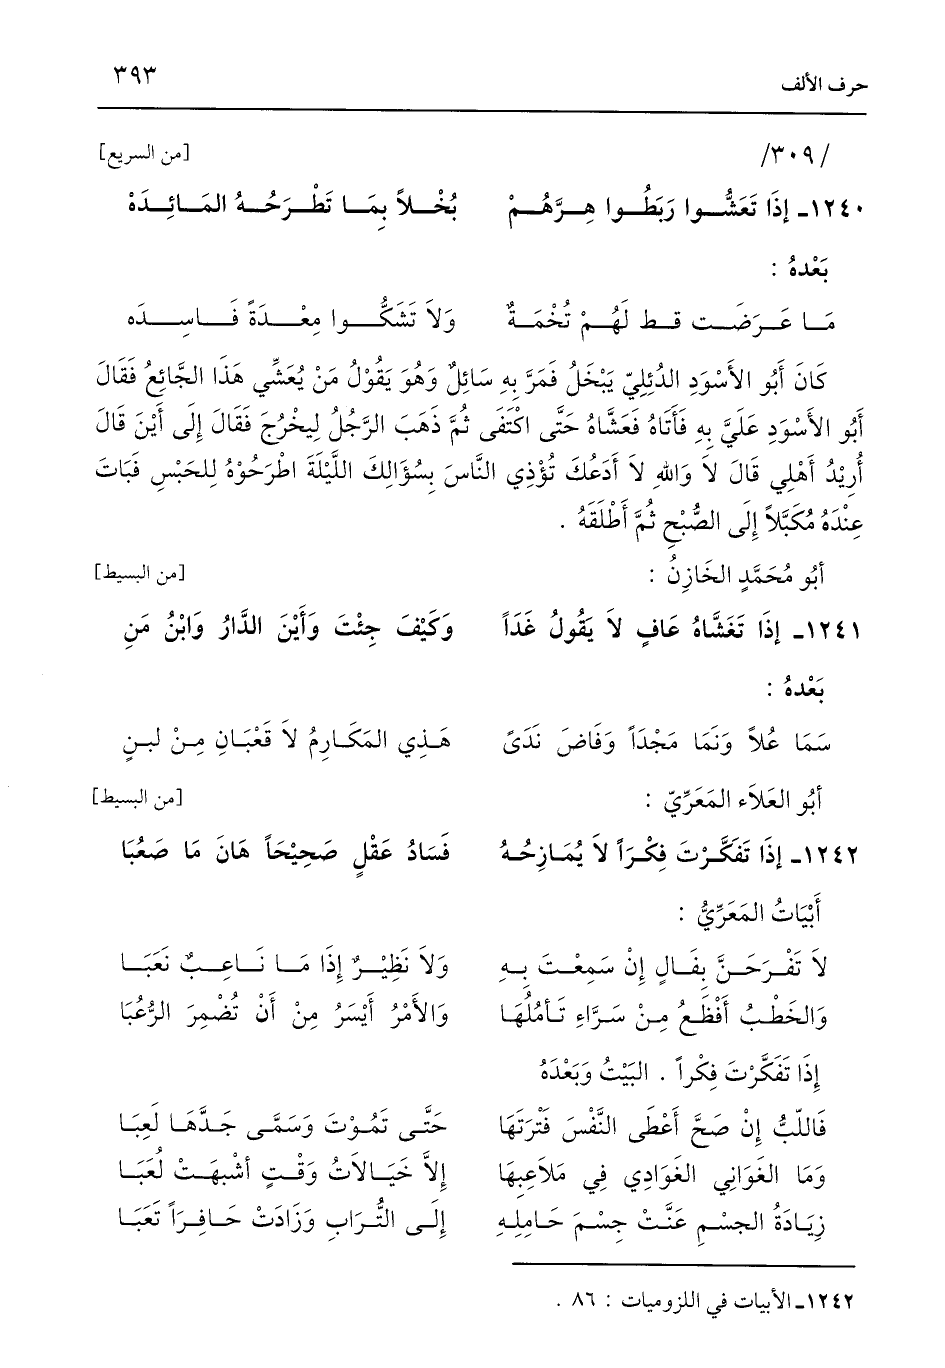 حرف الألف ٣٩٣
/٣٠٩/ [من السريع]
١٢٤٠ـ إذَا تَعَشُّوا رَبَطُوا هِرَّهُمْ بُخْلاً بِمَا تَطْرَحُهُ المَائِدَهْ
بَعْدهُ :
مَا عَرَضَت قط لَهُمْ تُخْمَةٌ وَلاَ تَشَكُّوا مِعْدَةً فَاسِدَه
كَانَ أَبُو الأَسْوَدِ الدُّئِلِيّ يَبْخَلُ فَمَرَّ بِهِ سَائِلٌ وَهُوَ يَقُوْلُ مَنْ يُعَشِّي هَذَا الجَّائِعُ فَقَالَ
أَبُو الأَسْوَدِ عَلَيَّ بِهِ فَأَتَاهُ فَعَشَّاهُ حَتَّى اكْتَفَى ثُمَّ ذَهَبَ الرَّجُلُ لِيخْرُجَ فَقَالَ إِلَى أَيْنَ قَالَ
أُرِيْدُ أَهْلِي قَالَ لاَ وَاللهِ لاَ أَدَعُكَ تُؤْذِي النَّاسَ بِسُؤَالِكَ اللَّيْلَةَ اطْرَحُوْهُ لِلحَبْسِ فَبَاتَ
عِنْدَهُ مُكَبَّلاً إِلَى الصُّبْحِ ثُمَّ أَطْلَقَهُ .
أَبُو مُحَمَّدٍ الخَازِنُ : [من البسيط]
١٢٤١ـ إذَا تَغَشَّاهُ عَافٍ لاَ يَقُولُ غَدَاً وَكَيْفَ جِئْتَ وَأَيْنَ الدَّارُ وَابْنُ مَنِ
بَعْدهُ :
سَمَا عُلاً وَنَمَا مَجْدَاً وَفَاضَ نَدَىً هَذِي المَكَارِمُ لاَ قَعْبَانِ مِنْ لبنِ
أَبُو العَلاَء المَعَرِّيّ : [من البسيط]
١٢٤٢ـ إذَا تَفَكَّرْتَ فِكْرَاً لاَ يُمَازِحُهُ فَسَادُ عَقْلٍ صَحِيْحَاً هَانَ مَا صَعُبَا
أَبْيَاتُ المَعَرِّيُّ :
لاَ تَفْرَحَنَّ بِفَالٍ إِنْ سَمِعْتَ بِهِ وَلاَ نَظِيْرٌ إِذَا مَا نَاعِبٌ نَعَبَا
وَالخَطْبُ أَفْظَعُ مِنْ سَرَّاءِ تَأمُلُهَا وَالأَمْرُ أَيْسَرُ مِنْ أَنْ تُضْمِرَ الرُّعُبَا
إِذَا تَفَكَّرْتَ فِكْراً . البَيْتُ وَبَعْدَهُ
فَاللُّبُّ إِنْ صَحَّ أَعْطَى النَّفْسَ فَتْرَتَهَا حَتَّى تَمُوْتَ وَسَمَّى جَدَّهَا لَعِبَا
وَمَا الغَوَانِي الغَوَادِي فِي مَلاَعِبِهَا إِلاَّ خَيَالاَتُ وَقْتٍ أَشْبَهَتْ لُعَبَا
زِيَادَةُ الجسْمِ عَنَّتْ جِسْمَ حَامِلِهِ إِلَى التُّرَابِ وَزَادَتْ حَافِرَاً تَعَبَا
١٢٤٢ـ الأبيات في اللزوميات : ٨٦ .